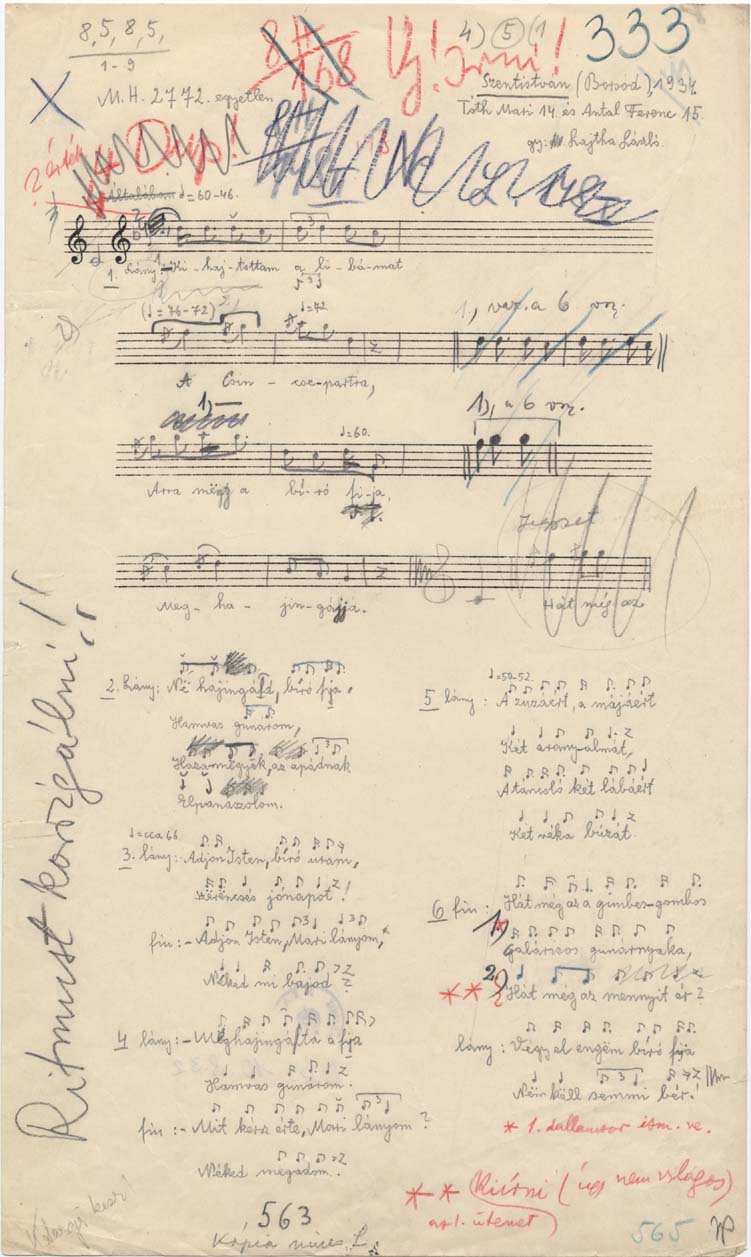 8,5,8,5,
1-9
M. H. 2772. egyetlen
8 H
168
Új! írni!
4) 5 (1
333
Szentistván (Borsod), 1934.
Tóth Mari 14. és Antal Ferenc 15.
gy: Lajtha László.
Dup!
Általában ♩=60-46.
1. Lány:-Ki-haj-tottam a li-bámat
(♩=76-72)
♩=72.
1., var. a 6 vsz.
A Csin-cse-partra,
1)
♩=60.
1), a 6 vsz.
Arra mëgy a bí-ró fi-ja,
Meg-ha-jin-gájja.
Hát még az
Ritmust korrigálni!!
2. Lány: Në hajingáld, bíró fija
Hamvas gunárom,
Haza mëgyëk, az apádnak
Elpanaszolom.
♩=cca 66.
3. lány:-Adjon Isten, bíró uram,
Szërëncsés jónapot!
fiu:-Adjon Isten, Mari lányom,
Néked mi bajod?
4 lány:-Mëghajingálta a fija
Hamvas gunárom.
fiu:-Mit kérsz érte, Mari lányom?
Néked megadom.
♩=50-52.
5 lány: A zuzáért, a májáért
Két arany-almát,
A táncoló két lábáért
Két véka búzát.
6 fiu: Hát még az a gimbes-gombos
1)
Galáricos gunárnyaka,
2)
** Hát még az mennyit ér?
lány: Végy el engëm bíró fija
Nëm këll semmi bér!
* 1. dallamsor ism. ve.
** Kiírni (úgy nem világos)
az 1. ütemet
563
Kópia nincs L.
565